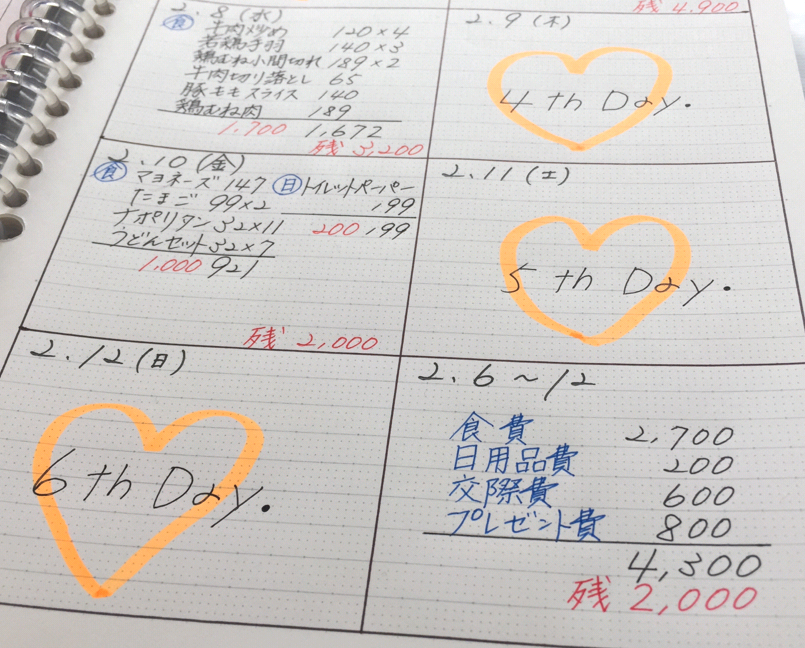 残 4,900
2.8(水)
食 牛肉炒め 120×4
若鶏手羽 140×3
鶏むね小間切れ 189×2
牛肉切り落とし 65
豚ももスライス 140
鶏むね肉 189
1,700 1,672
残 3,200
2.9(木)
4th Day.
2.10(金)
食 マヨネーズ 147
たまご 99×2
ナポリタン 32×11
うどんセット 32×7
1,000 921
日 トイレットペーパー
199
200 199
残 2,000
2.11(土)
5th Day.
2.12(日)
6th Day.
2.6~12
食費 2,700
日用品費 200
交際費 600
プレゼント費 800
4,300
残 2,000